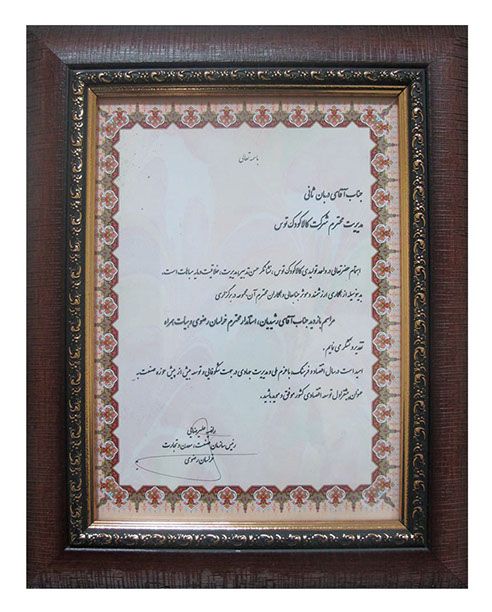 باسمه تعالی
جناب آقای دهبان ثانی
مدیریت محترم شرکت کالا کودک توس
اهتمام حضرتعالی در واحد تولیدی کالا کودک توس، نشانگر حسن تدبیر، مدیریت، خلاقیت و مایه مباهات است،
بدینوسیله از همکاری ارزشمند و موثر جنابعالی و همکاران محترم آن مجموعه در برگزاری
مراسم بازدید جناب آقای رشیدیان، استاندار محترم خراسان رضوی و هیأت همراه
تقدیر و تشکر می نمایم.
امید است در سال اقتصاد و فرهنگ، با عزم ملی و مدیریت جهادی در جهت شکوفایی و توسعه بیش از پیش حوزه صنعت به
عنوان پیشقراول توسعه اقتصادی کشور موفق و موید باشید.
راضیه علیرضایی
رئیس سازمان صنعت، معدن و تجارت
خراسان رضوی